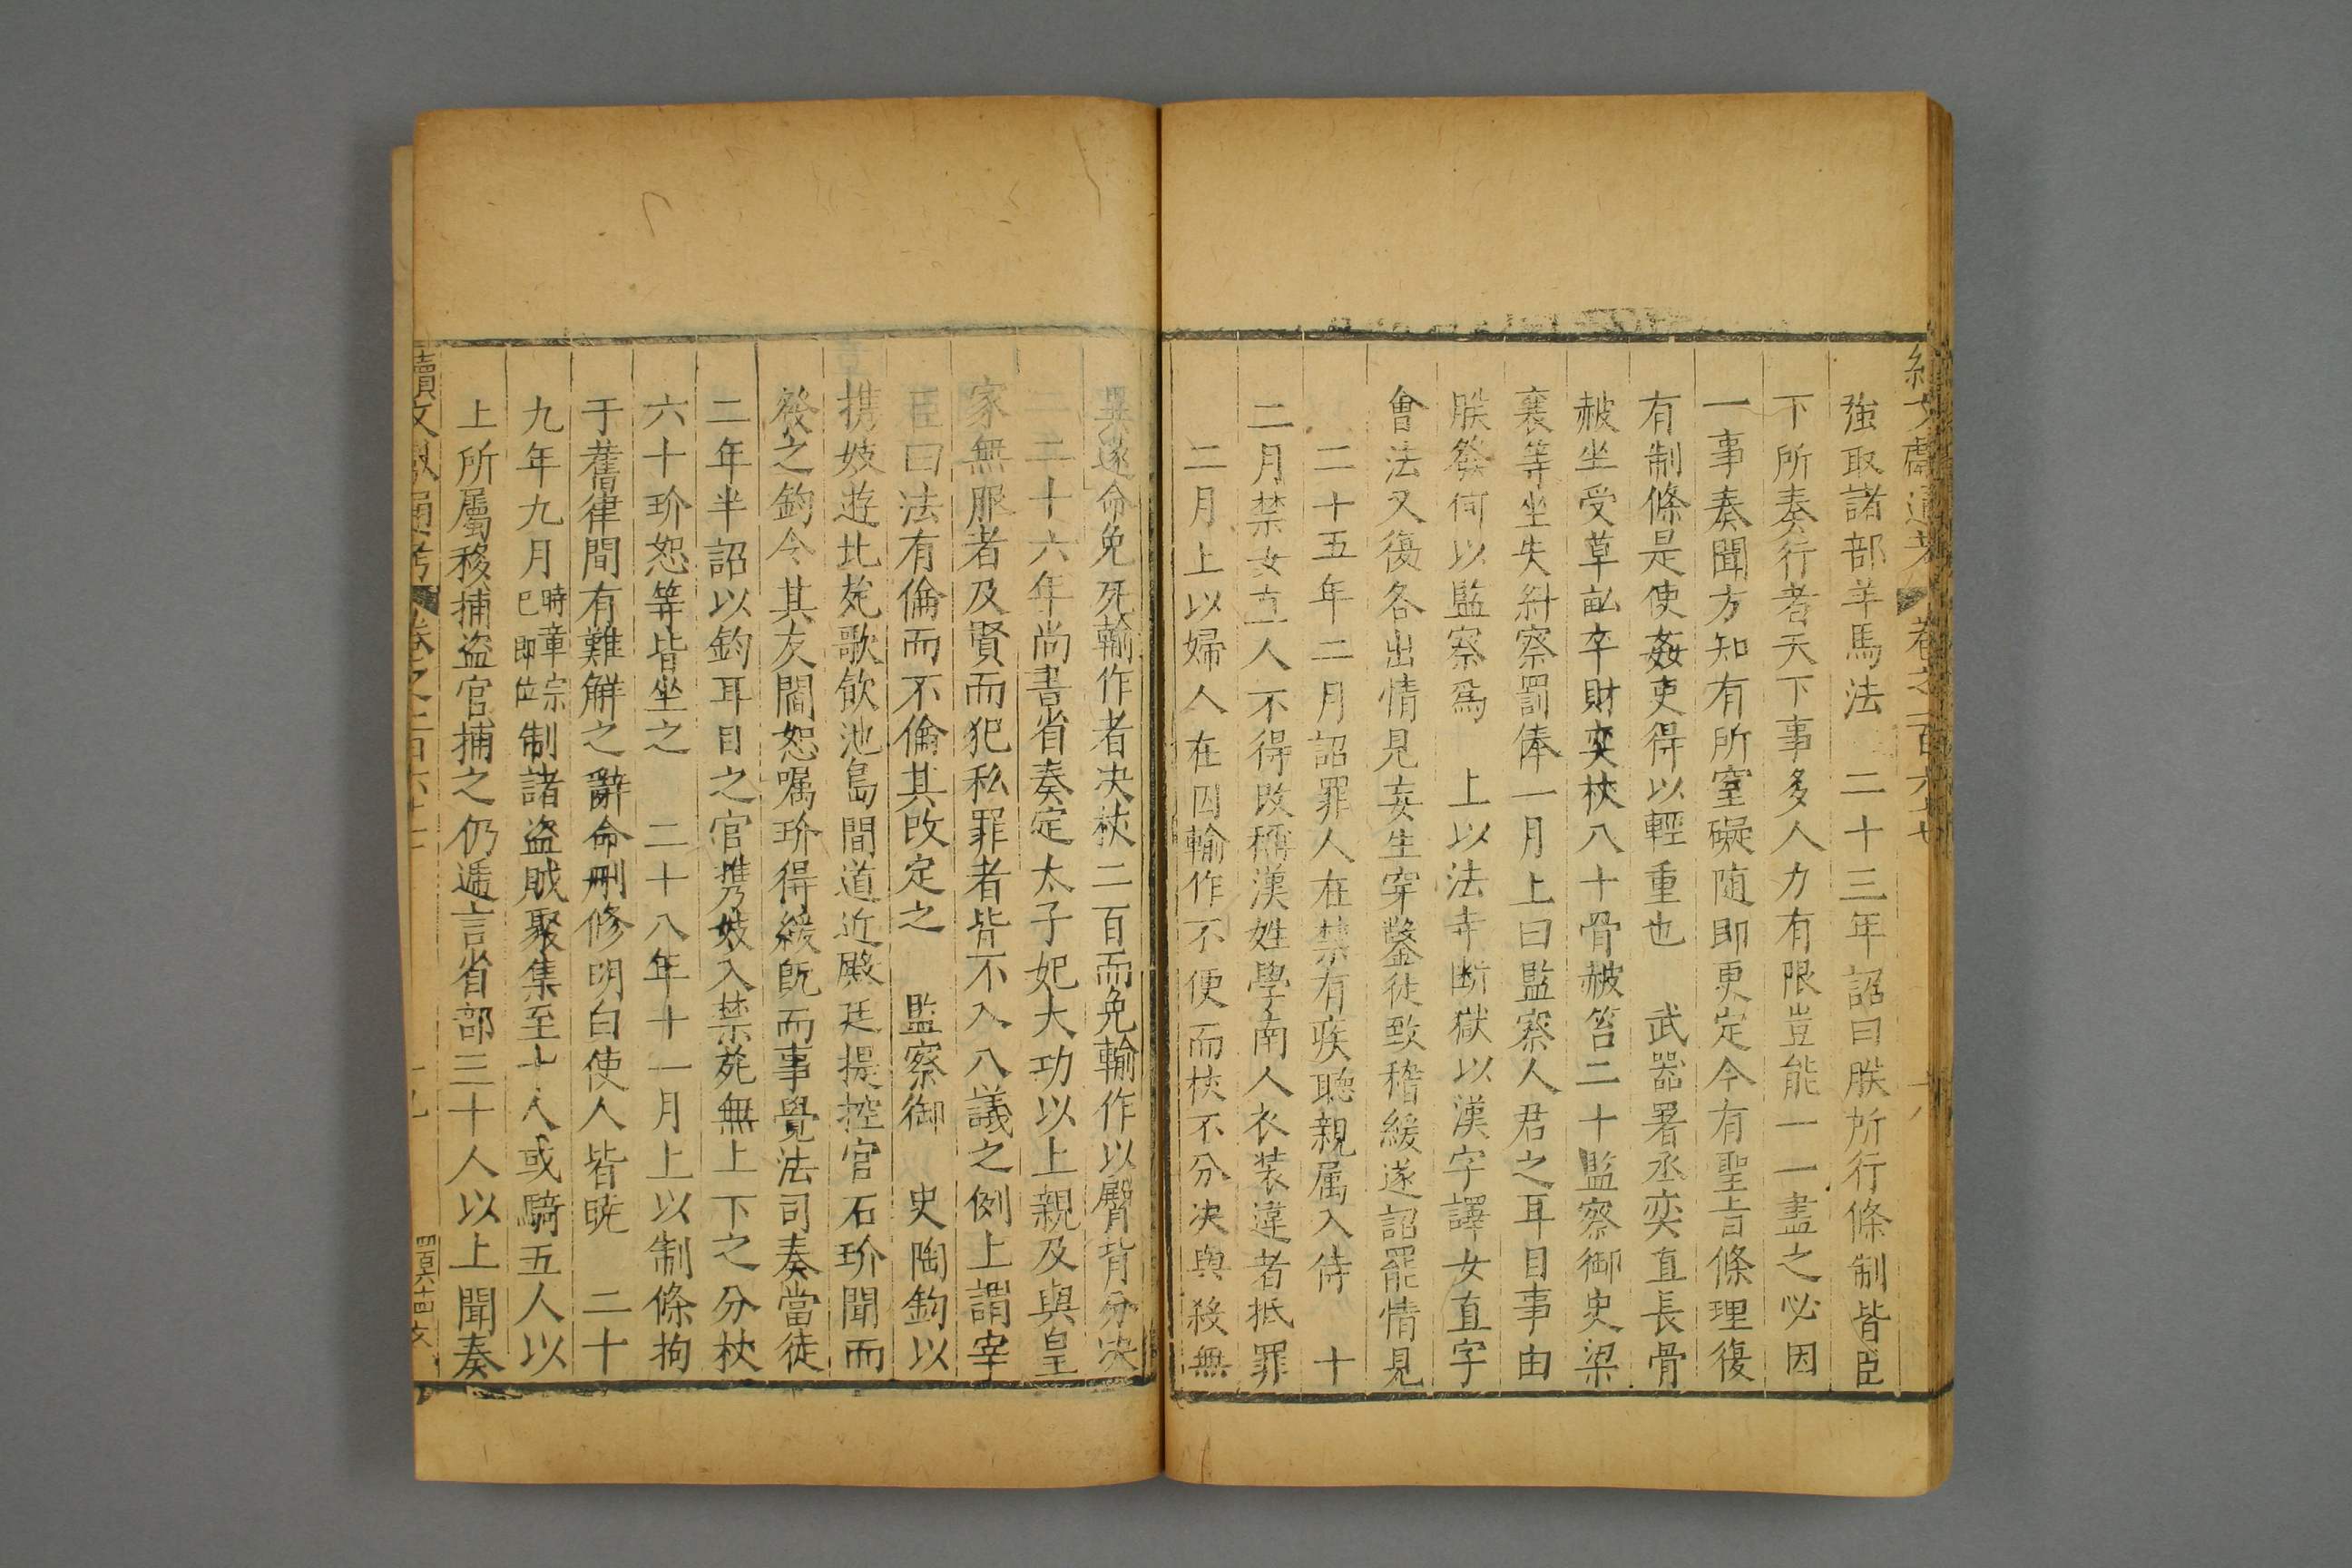 續文獻通考 卷之一百六十七
強取諸部羊馬法 二十三年詔曰朕所行條制皆臣
下所奏行者天下事多人力有限豈能一一盡之必因
一事奏聞方知有所窒礙随即更定今有聖旨條理復
有制條是使姦吏得以輕重也 武器署丞奕直長骨
赧坐受草畆卒財奕杖八十骨赧笞二十監察御史梁
襄等坐失糾察罰俸一月上曰監察人君之耳目事由
朕發何以監察爲 上以法寺断獄以漢字譯女直字
會法又復各出情見妄生穿鑿徒致稽緩遂詔罷情見
二十五年二月詔罪人在禁有疾聽親属入侍 十
二月禁女直人不得改稱漢姓學南人衣装違者抵罪
二月上以婦人在囚輸作不便而杖不分决與殺無
異遂命免死輸作者决杖二百而免輸作以臀背分决
二十六年尚書省奏定太子妃大功以上親及與皇
家無服者及賢而犯私罪者皆不入八議之例上謂宰
臣曰法有倫而不倫其改定之 監察御 史陶鈞以
携妓遊北苑歌飲池島間道近殿廷提控官石玠聞而
發之鈞令其友閻恕嘱玠得緩既而事覺法司奏當徒
二年半詔以鈞耳目之官携妓入禁苑無上下之分杖
六十玠恕等皆坐之 二十八年十一月上以制條拘
于舊律間有難觧之辭命刪修明白使人皆曉 二十
九年九月時章宗已即位制諸盜賊聚集至十人或騎五人以
上所屬移捕盜官捕之仍遞言省部三十人以上聞奏
續文獻通考 卷之一百六十七 十九 四百六十四